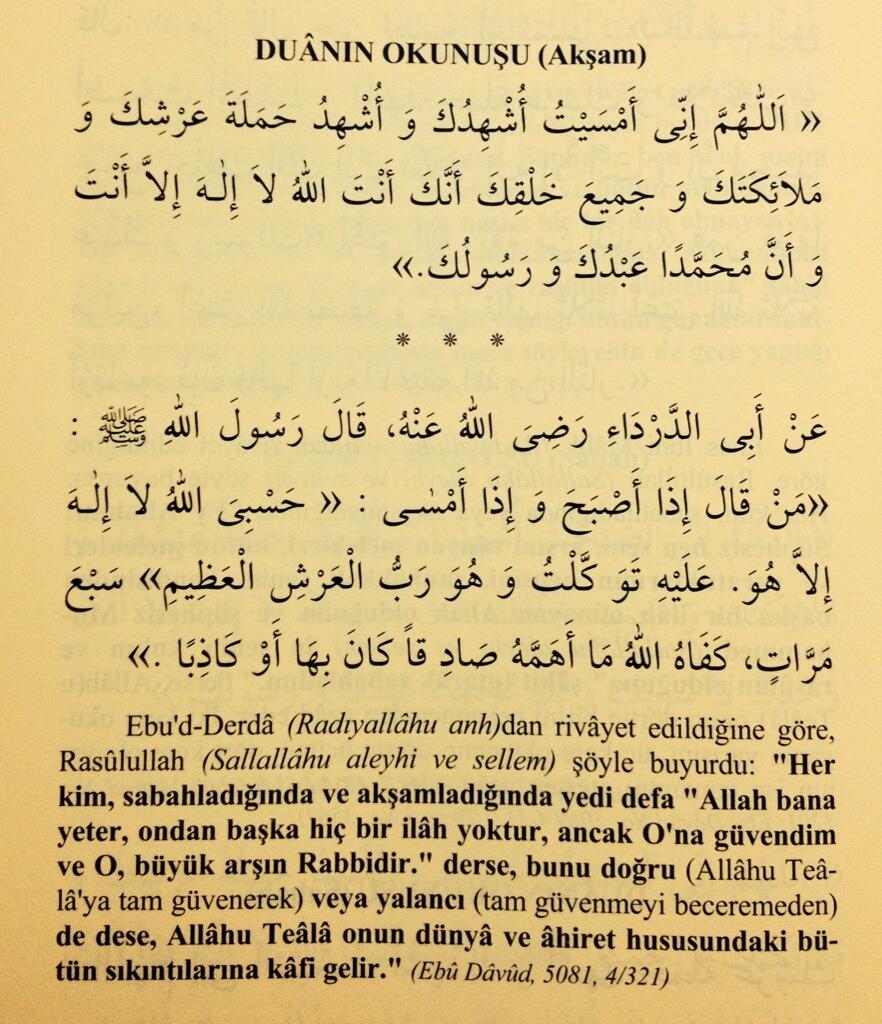 DUÂNIN OKUNUŞU (Akşam)
« اَللّٰهُمَّ إِنِّى أَمْسَيْتُ أُشْهِدُكَ وَ أُشْهِدُ حَمَلَةَ عَرْشِكَ وَ
مَلاَئِكَتَكَ وَ جَمِيعَ خَلْقِكَ أَنَّكَ أَنْتَ اللهُ لاَ إِلٰهَ إِلاَّ أَنْتَ
وَ أَنَّ مُحَمَّدًا عَبْدُكَ وَ رَسُولُكَ.»
* * *
عَنْ أَبِى الدَّرْدَاءِ رَضِىَ اللهُ عَنْهُ، قَالَ رَسُولَ اللهِ ﷺ :
«مَنْ قَالَ إِذَا أَصْبَحَ وَ إِذَا أَمْسٰى : « حَسْبِىَ اللهُ لاَ إِلٰهَ
إِلاَّ هُوَ. عَلَيْهِ تَوَ كَّلْتُ وَ هُوَ رَبُّ الْعَرْشِ الْعَظِيمِ» سَبْعَ
مَرَّاتٍ، كَفَاهُ اللهُ مَا أَهَمَّهُ صَادِ قاً كَانَ بِهَا أَوْ كَاذِبًا .»
Ebu'd-Derdâ (Radıyallâhu anh)dan rivâyet edildiğine göre,
Rasûlullah (Sallallâhu aleyhi ve sellem) şöyle buyurdu: "Her
kim, sabahladığında ve akşamladığında yedi defa "Allah bana
yeter, ondan başka hiç bir ilâh yoktur, ancak O'na güvendim
ve O, büyük arşın Rabbidir." derse, bunu doğru (Allâhu Teâ-
lâ'ya tam güvenerek) veya yalancı (tam güvenmeyi beceremeden)
de dese, Allâhu Teâlâ onun dünyâ ve âhiret hususundaki bü-
tün sıkıntılarına kâfi gelir." (Ebû Dâvûd, 5081, 4/321)